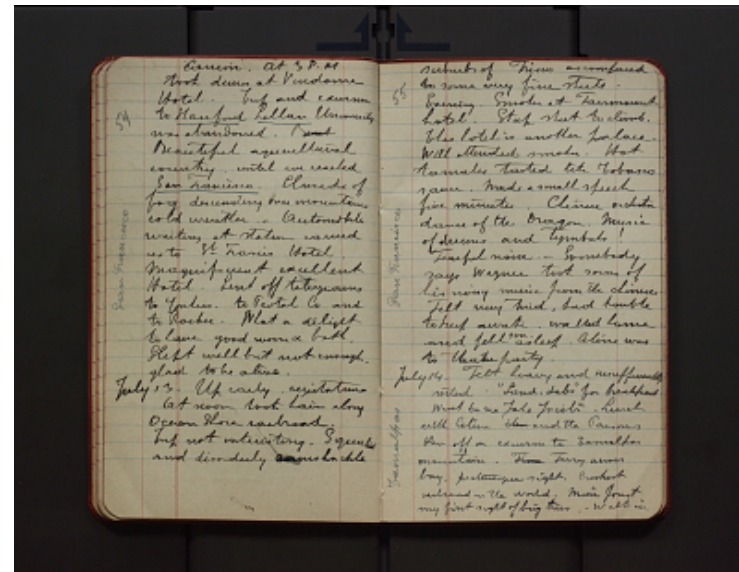 54
San Francisco
at 3 P.M
took dinner at Vendome
Hotel. Trip and excursion
to Stanford Lelland University
was abandoned.
Beautiful agricultural
country, until we reached
San Francisco. Clouds of
fog descending over mountains
cold weather. Automobile
waiting at station carried
us to St Francis Hotel
Magnificent excellent
Hotel. Sent off telegrams
to
to What a delight
to have good room & bath.
Slept well but not enough.
glad to be alive.
July 13. Up early.
At noon took train along
Ocean Shore railroad.
Trip not interesting. Squeaky
and disorderly ramshackle
55
San Francisco
Tamalpais
suburbs of Frisco as compared
to some very fine streets.
Evening. Smoker at Fairmount
hotel. Steep street to climb.
This hotel is another palace.
Well attended smoker. Hot
tamales tasted like Tobasco
sauce. Made a small speech
five minutes. Chinese orchestra
dance of the Dragon. Music
of drums and Cymbals!
Fearful noise. Somebody
says Wagner took some of
his noisy music from the chinese
Felt very tired, had trouble
to keep awake. walked home
and fell soon asleep. Celine was
to theatre party.
July 14. Felt heavy and insufficiently
rested.
Went to see Lunch
with Celine and the
then off on excursion to Tamalpais
mountain. Ferry across
bay. picturesque sight. Crookedest
railroad in the world. Muir forest
my first sight of big trees. - Walk in